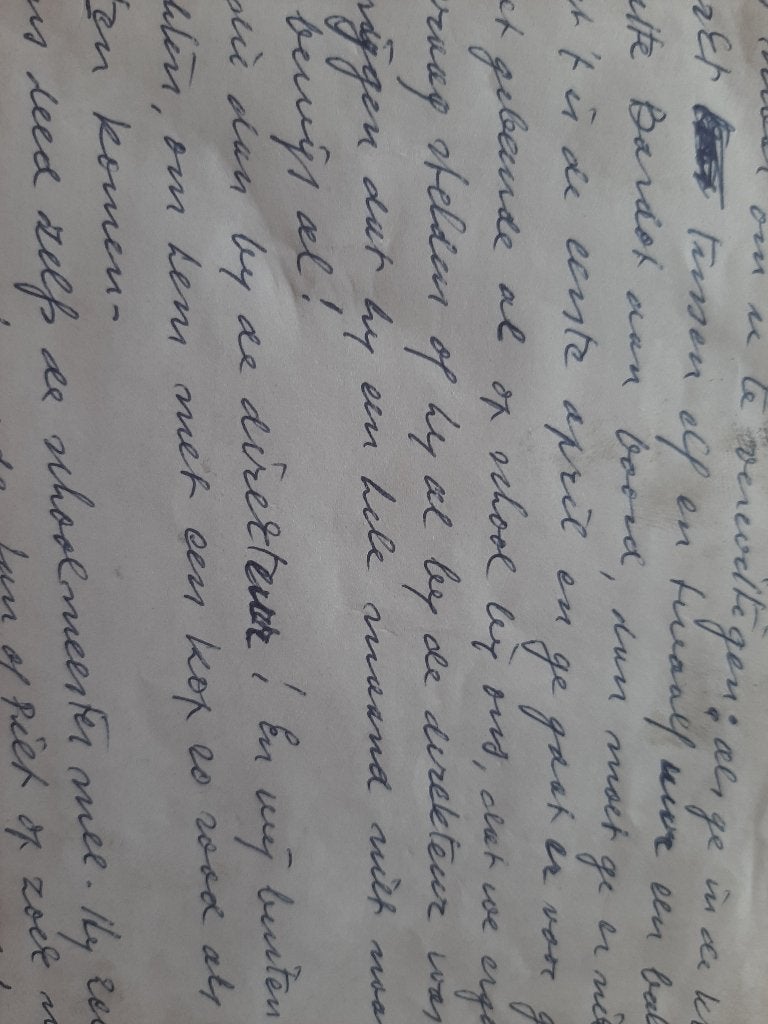 om u te verwittigen: als ge in de k
tussen elf en twaalf uur een bal
itte Bardot aan boord, dan moet ge er nie
t 't is de eerste april en ge gaat er voor g
et gebeurde al op school bij ons, dat we erge
vraag stelden of hy al by de direkteur was
ijgen dat hy een hele maand niet naa
bewijs al!
dan by de direkteur! En wij buiten
uten, om hem met een kop zo rood als
ten komen-
ns deed zelfs de schoolmeester mee. Hy zei
Jan of Piet op zoek n